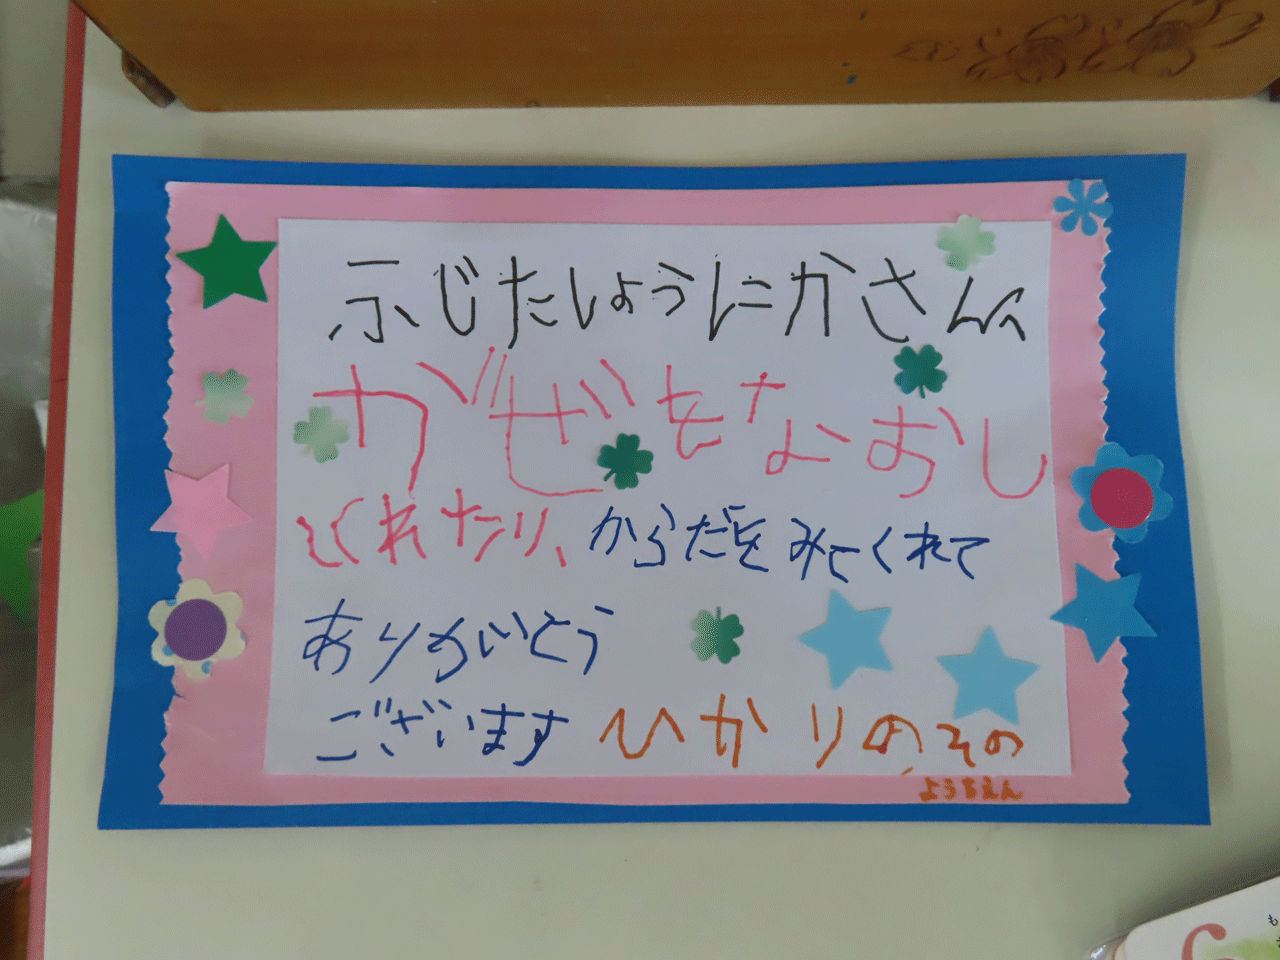 ふじたしょうにかさんへ
かぜをなおし
てくれたり、からだをみてくれて
ありがとう
ございます ひかりのその
ようちえん